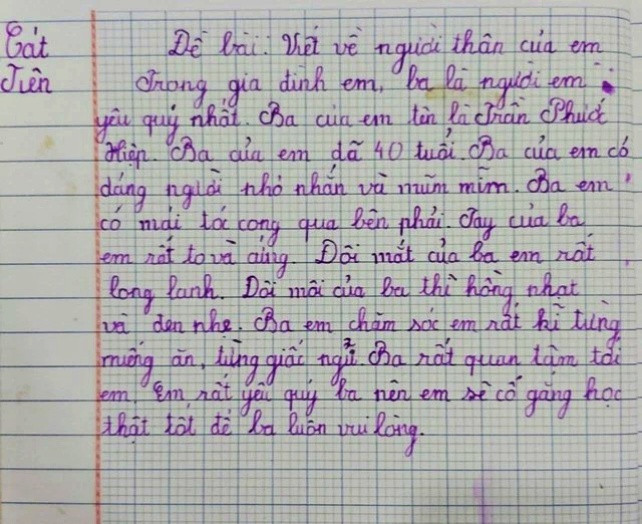 Cát
Tiên
Đề bài: Viết về người thân của em
Trong gia đình em, ba là người em
yêu quý nhất. Ba của em tên là Trần Phước
Hiệp. Ba của em đã 40 tuổi. Ba của em có
dáng người nhỏ nhắn và mũm mĩm. Ba em
có mái tóc cong qua bên phải. Tay của ba
em rất to và cứng. Đôi mắt của ba em rất
long lanh. Đôi môi của ba thì hồng nhạt
và đen nhẹ. Ba em chăm sóc em rất kĩ từng
miếng ăn, từng giấc ngủ. Ba rất quan tâm tới
em. Em rất yêu quý ba nên em sẽ cố gắng học
thật tốt để ba luôn vui lòng.